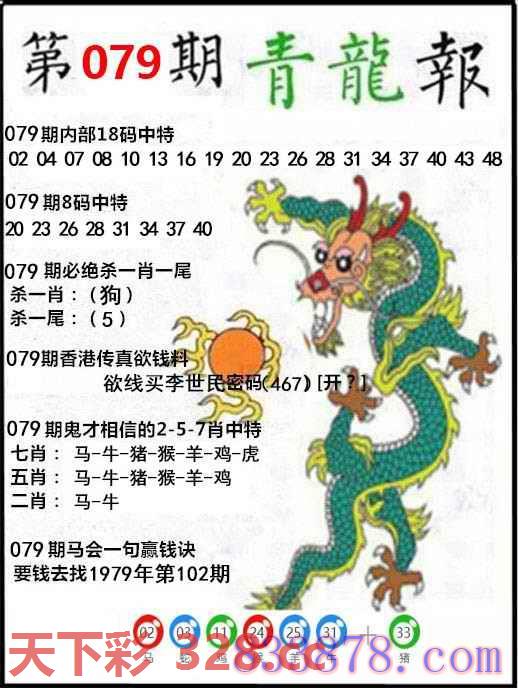 第079期青龍報
079期内部18码中特
02 04 07 08 10 13 16 19 20 23 26 28 31 34 37 40 43 48
079期8码中特
20 23 26 28 31 34 37 40
079期必绝杀一肖一尾
杀一肖：（狗）
杀一尾：（5）
079期香港传真欲钱料
欲线买李世民密码(467) [开？]
079期鬼才相信的2-5-7肖中特
七肖： 马-牛-猪-猴-羊-鸡-虎
五肖： 马-牛-猪-猴-羊-鸡
二肖： 马-牛
079期马会一句赢钱诀
要钱去找1979年第102期
02 03 11 24 25 31 + 33
马 蛇 鸡 猴 羊 牛 猪
天下彩